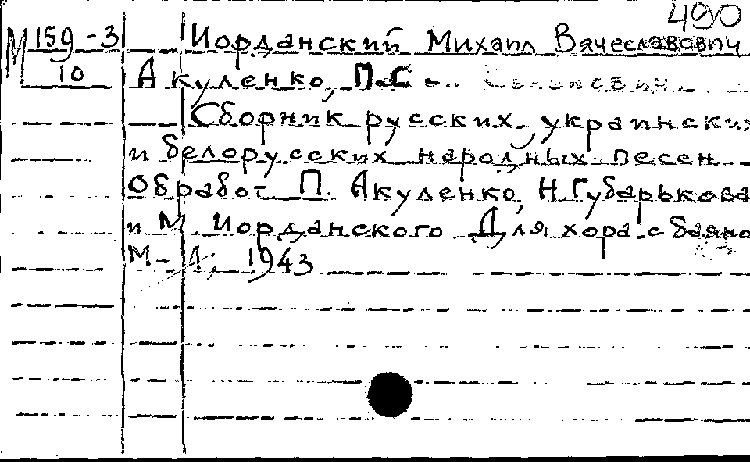 490
М 159-3 Иорданский Михаил Вячеславович
10 Акуленко, П.С.
Сборник русских, украинских
и белорусских народных песен
Обработ П. Акуленко, Н. Губарькова
и М. Иорданского Для хора с баяно
М-Л, 1943